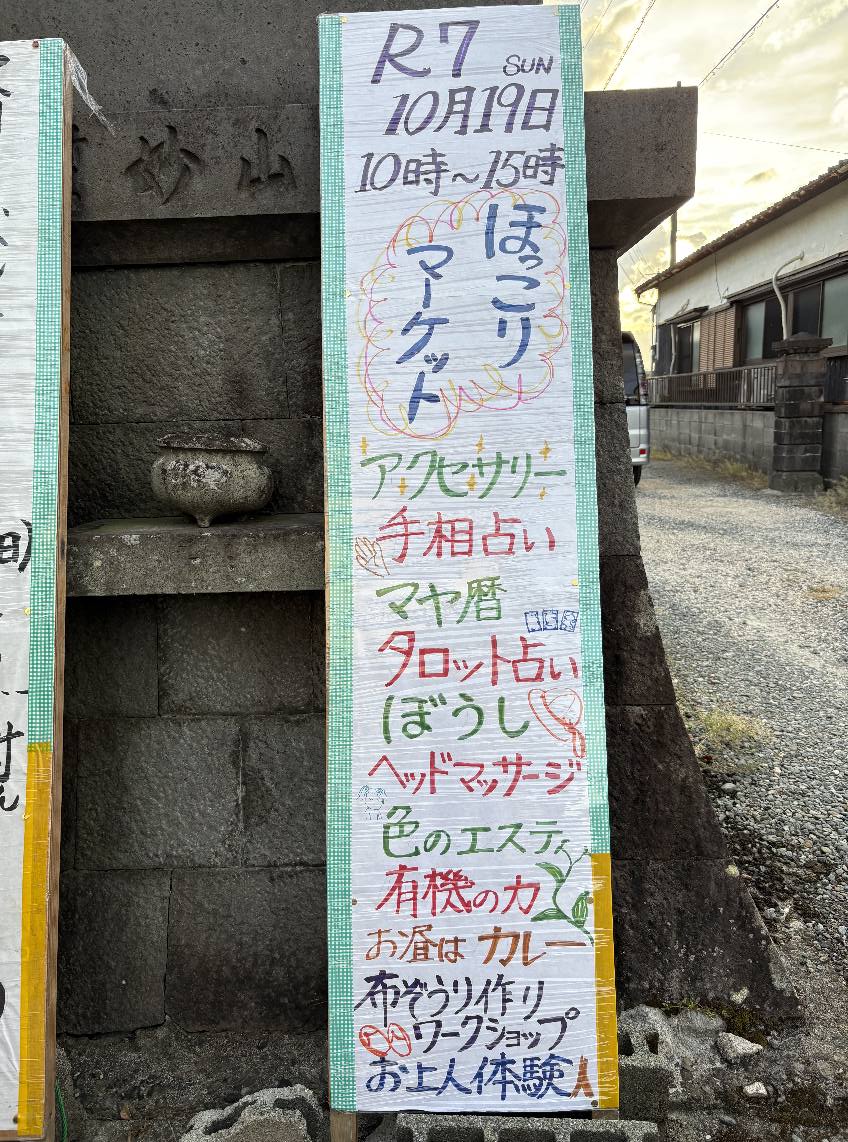 R7 SUN
10月19日
10時～15時
ほっこり
マーケット
アクセサリー
手相占い
マヤ暦
タロット占い
ぼうし
ヘッドマッサージ
色のエステ
有機の力
お昼はカレー
布ぞうり作り
ワークショップ
お上人体験
妙山